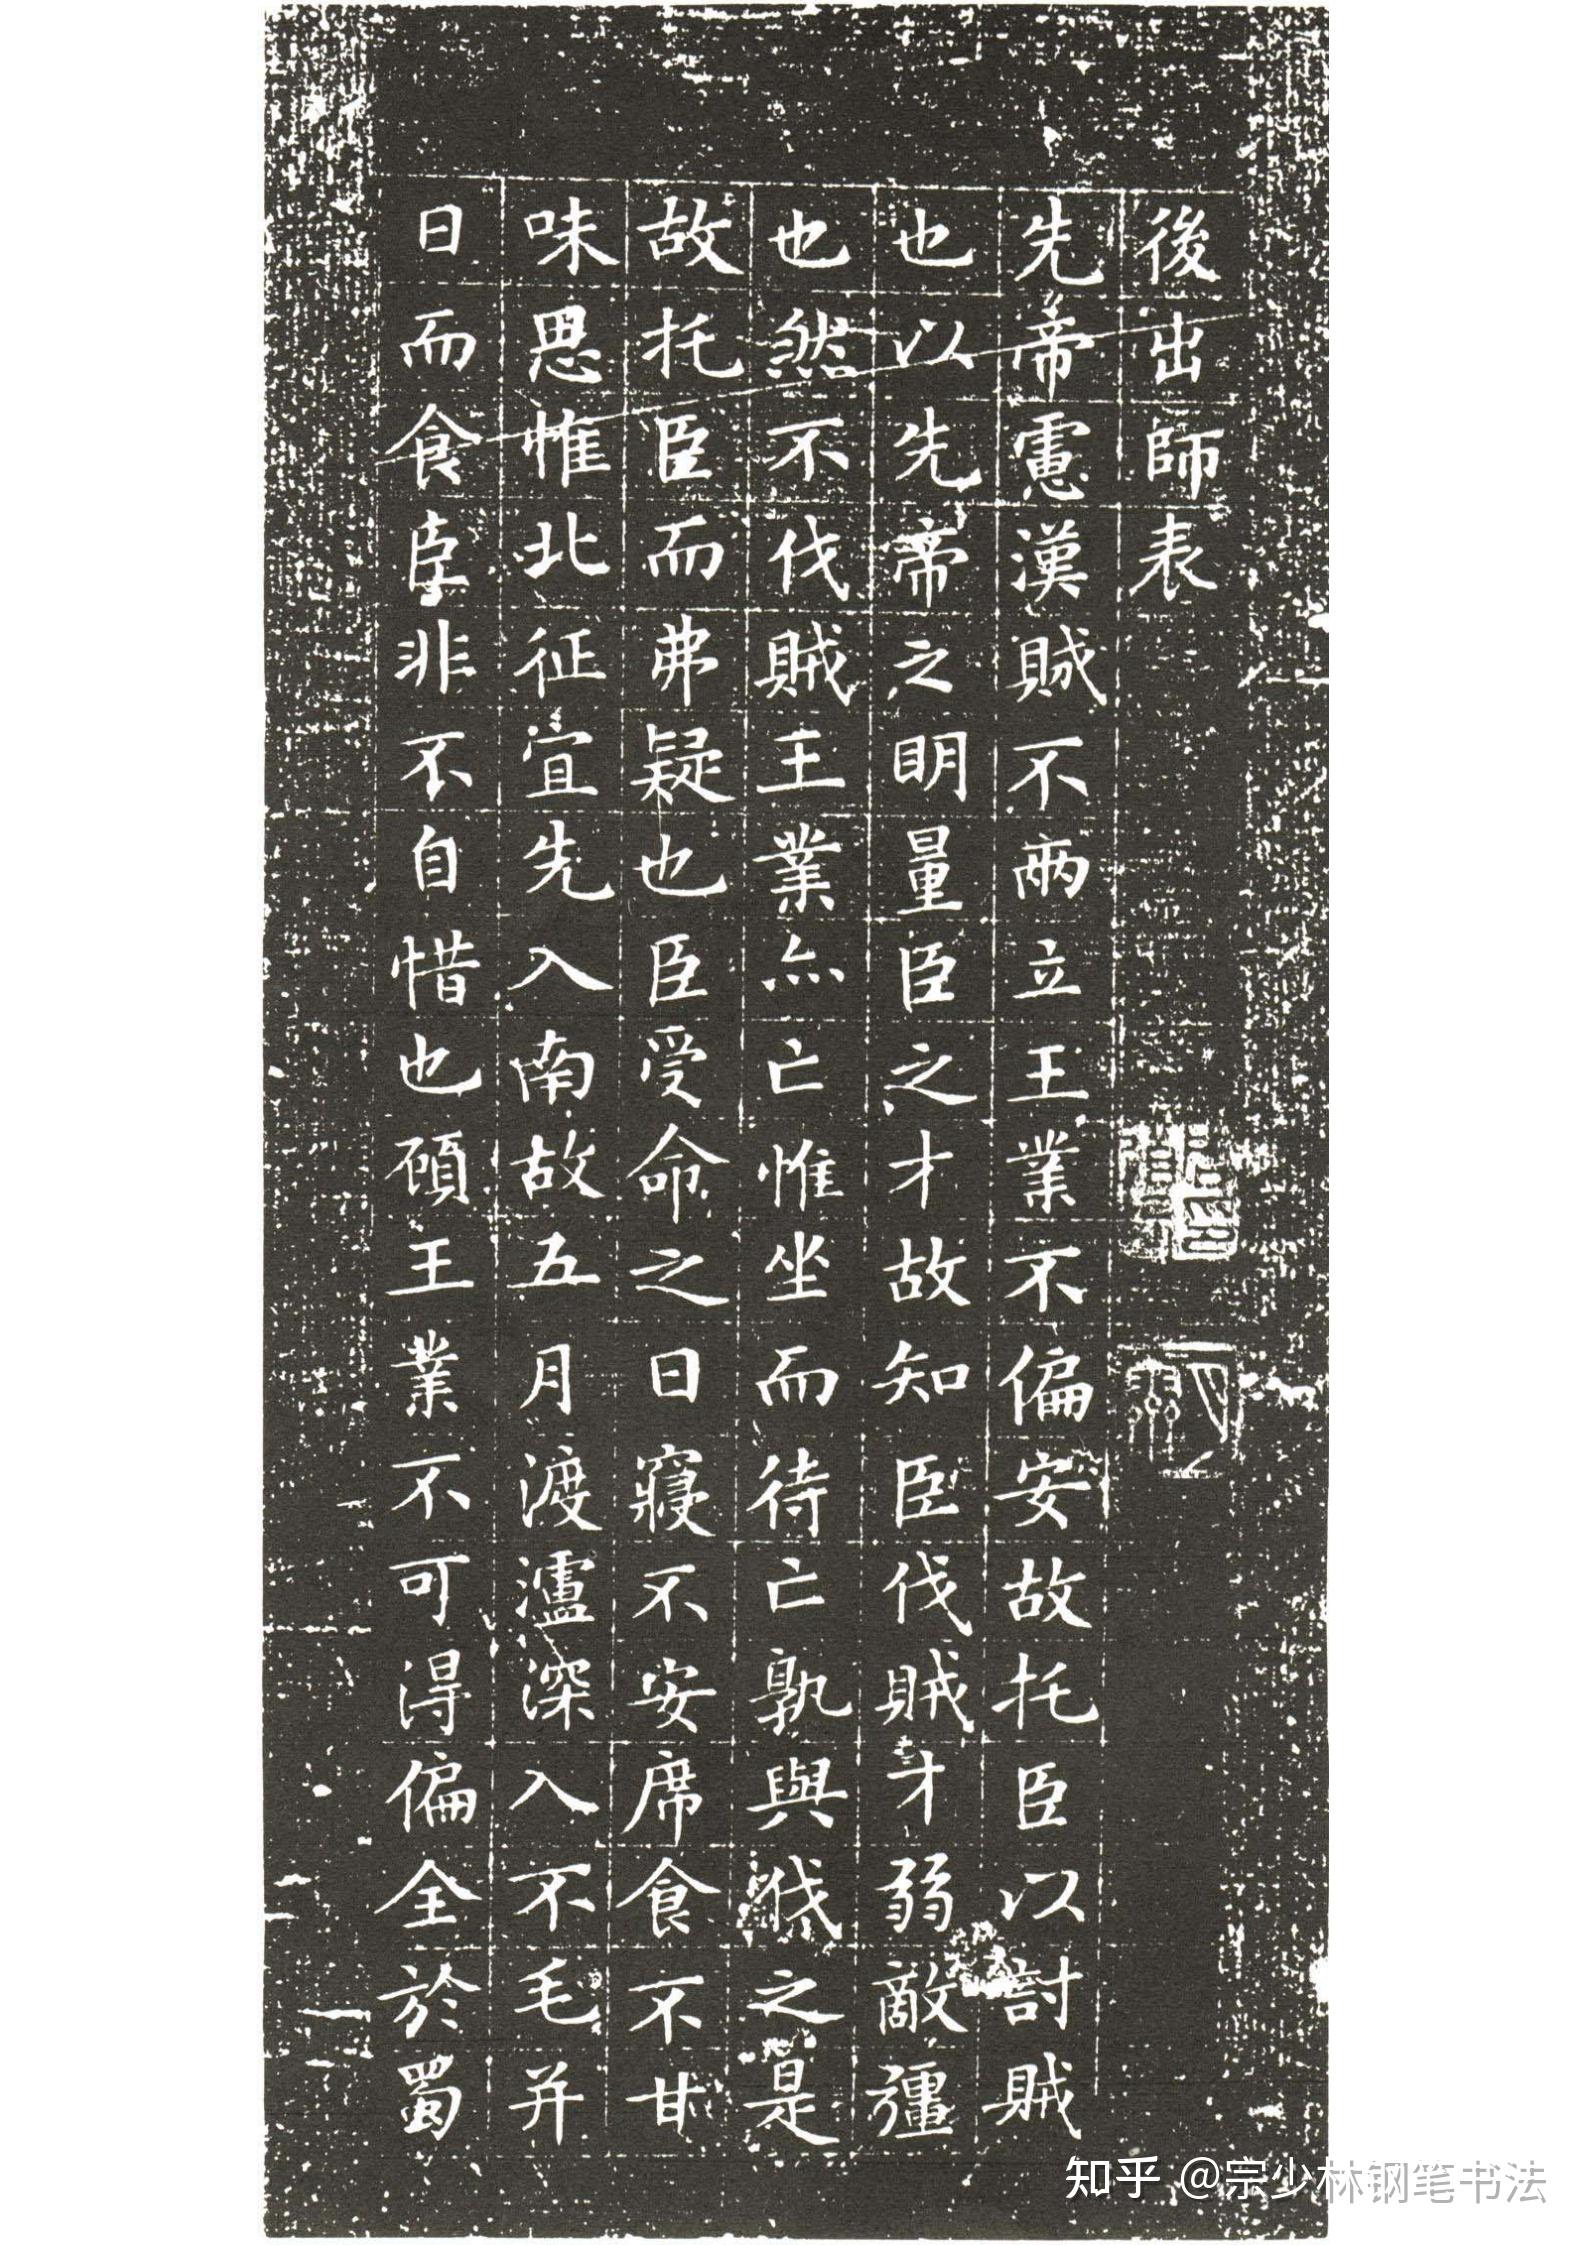 後出師表
先帝慮漢賊不兩立王業不偏安故托臣以討賊
也以先帝之明量臣之才故知臣伐賊才弱敵彊
也然不伐賊王業亦亡惟坐而待亡孰與伐之是
故托臣而弗疑也臣受命之日寢不安席食不甘
味思惟北征宜先入南故五月渡瀘深入不毛并
日而食臣非不自惜也顧王業不可得偏全於蜀
知乎 @宗少林钢笔书法